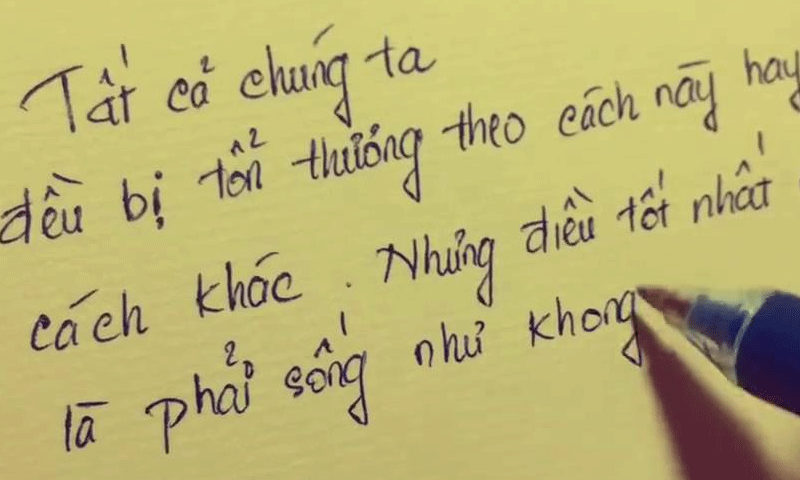 Tất cả chúng ta
đều bị tổn thương theo cách này hay
cách khác. Nhưng điều tốt nhất
là phải sống như khong